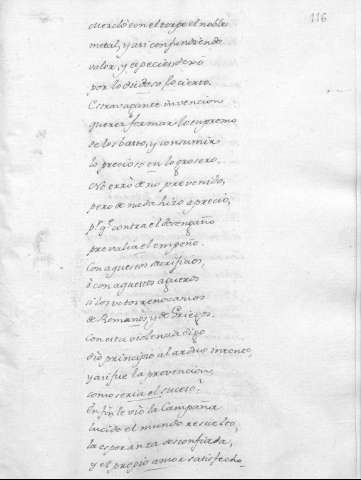 116
con el torpe el noble
metal, y assi confundiendo
valor, y especies de no
por lo dudoso lo cierto.
Extravagante invencion
querer formar lo supremo
de los baxos, y consumir
lo precioso en lo grosero.
No errò de no prevenido,
pero de nada hizo aprecio,
pr q. contra el desengaño
prevalia el empeño.
Con aquestos sacrificios,
ò con aquestos agueros
a los votos renovamos
de Romanos, y de Griegos.
Con esta violencia digo
diò principio al arduo intento,
y assi fue la prevencion,
como seria el suceso.
En fin le viò la Campaña
lucido el mundo resuelto,
la esperanza desconfiada,
y el propio amor satisfecho.